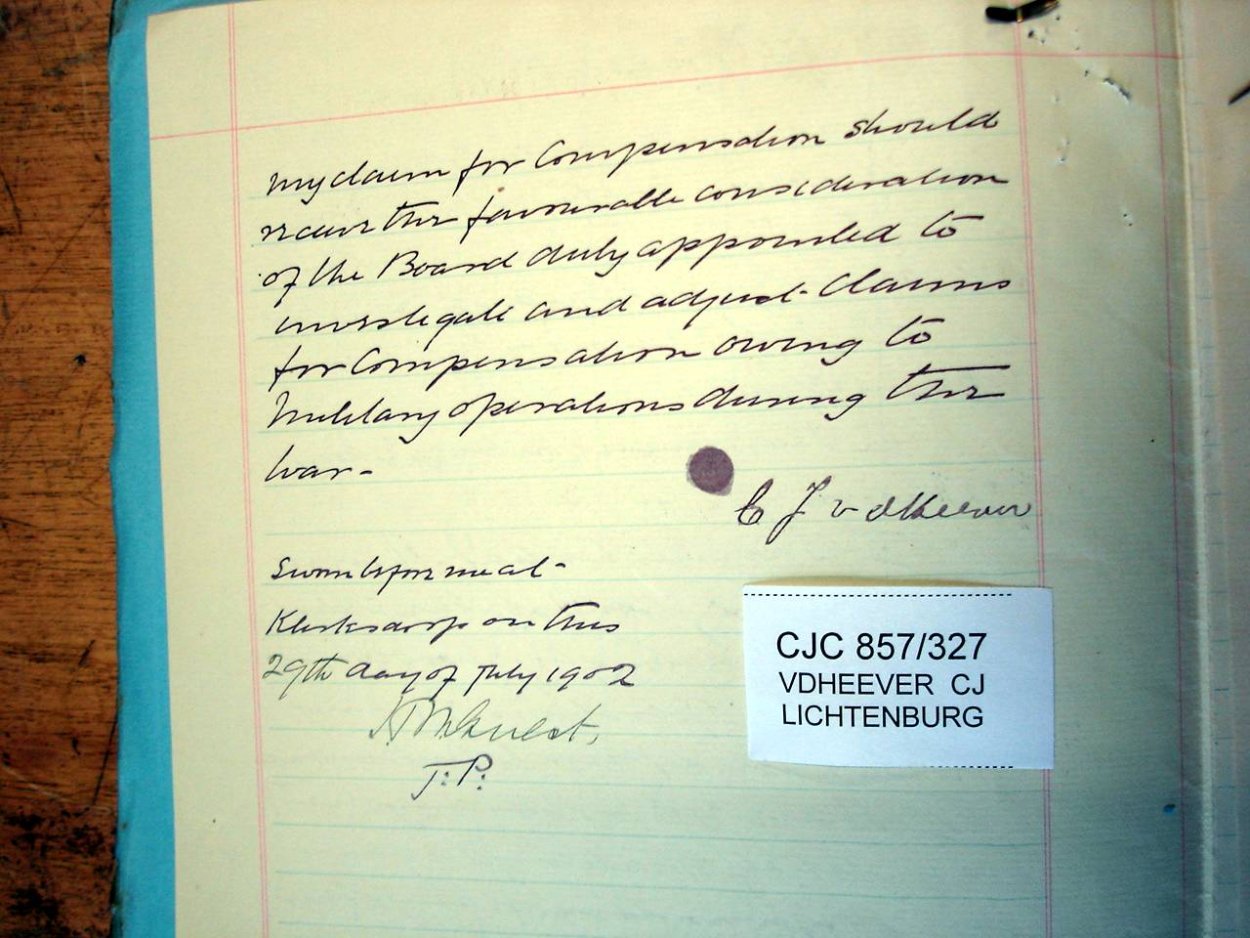 my claim for Compensation should
receive the favourable consideration
of the Board duly appointed to
investigate and adjust Claims
for Compensation owing to
Military operations during the
War -
C J v d Heever
Sworn before me at -
Klerksdorp on this
29th day of July 1902
J. P.
CJC 857/327
VDHEEVER CJ
LICHTENBURG